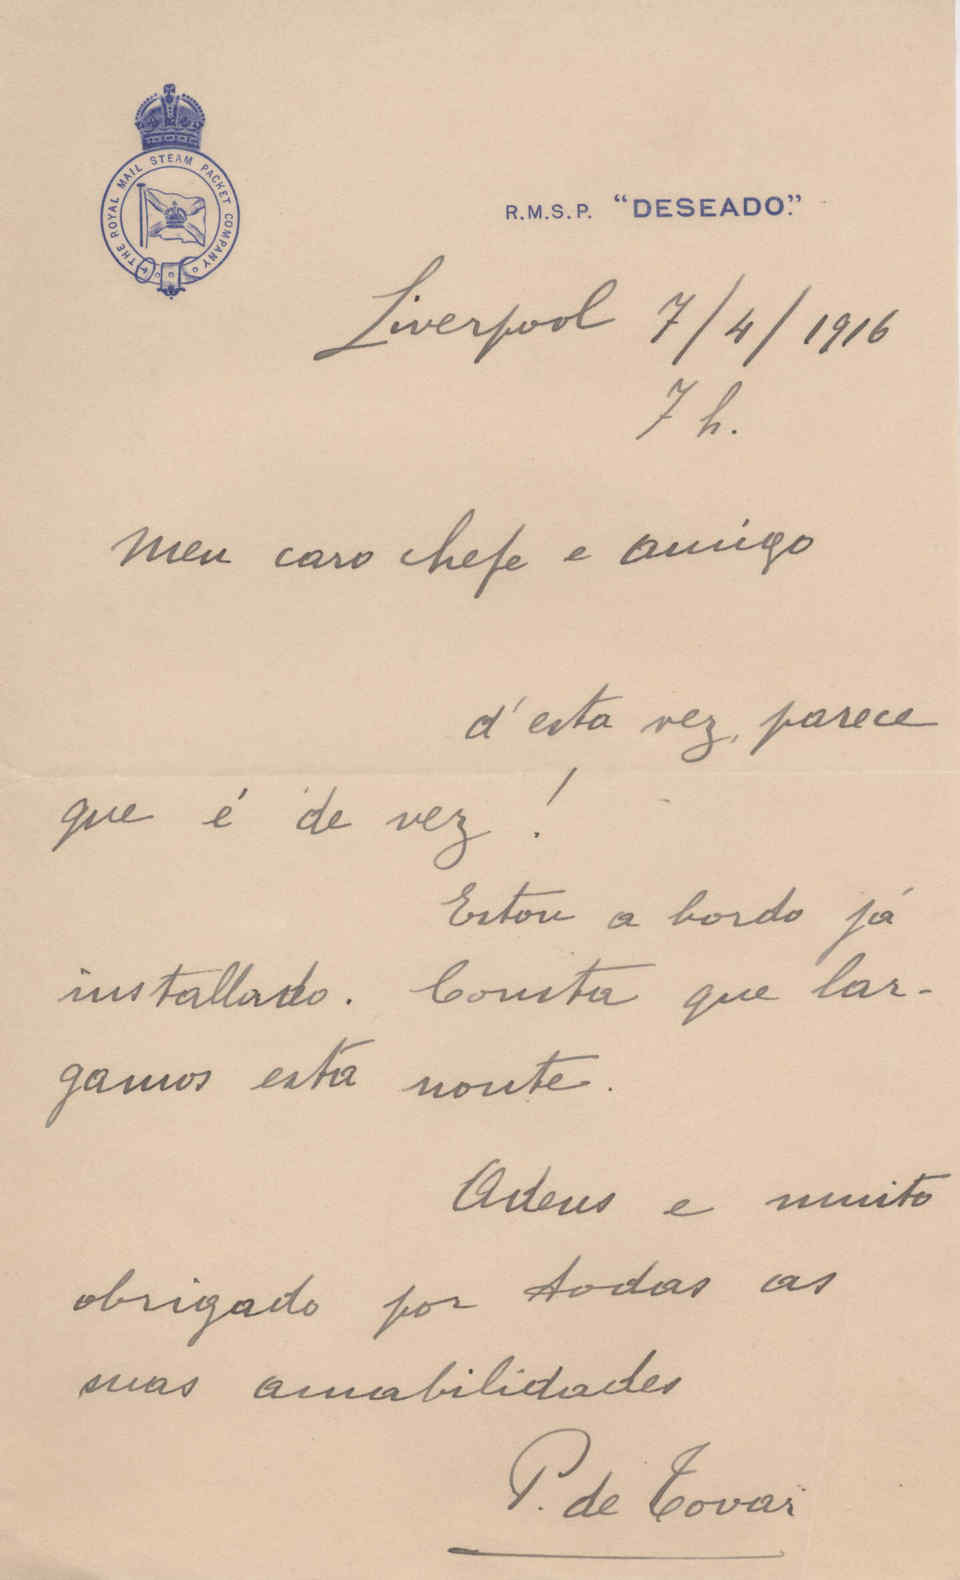 THE ROYAL MAIL STEAM PACKET COMPANY
R.M.S.P. "DESEADO."
Liverpool 7/4/1916
7 h.
Meu caro chefe e amigo
d'esta vez, parece
que é de vez!
Estou a bordo já
installado. Consta que lar-
gamos esta noute.
Adeus e muito
obrigado por todas as
suas amabilidades
P. de Tovar